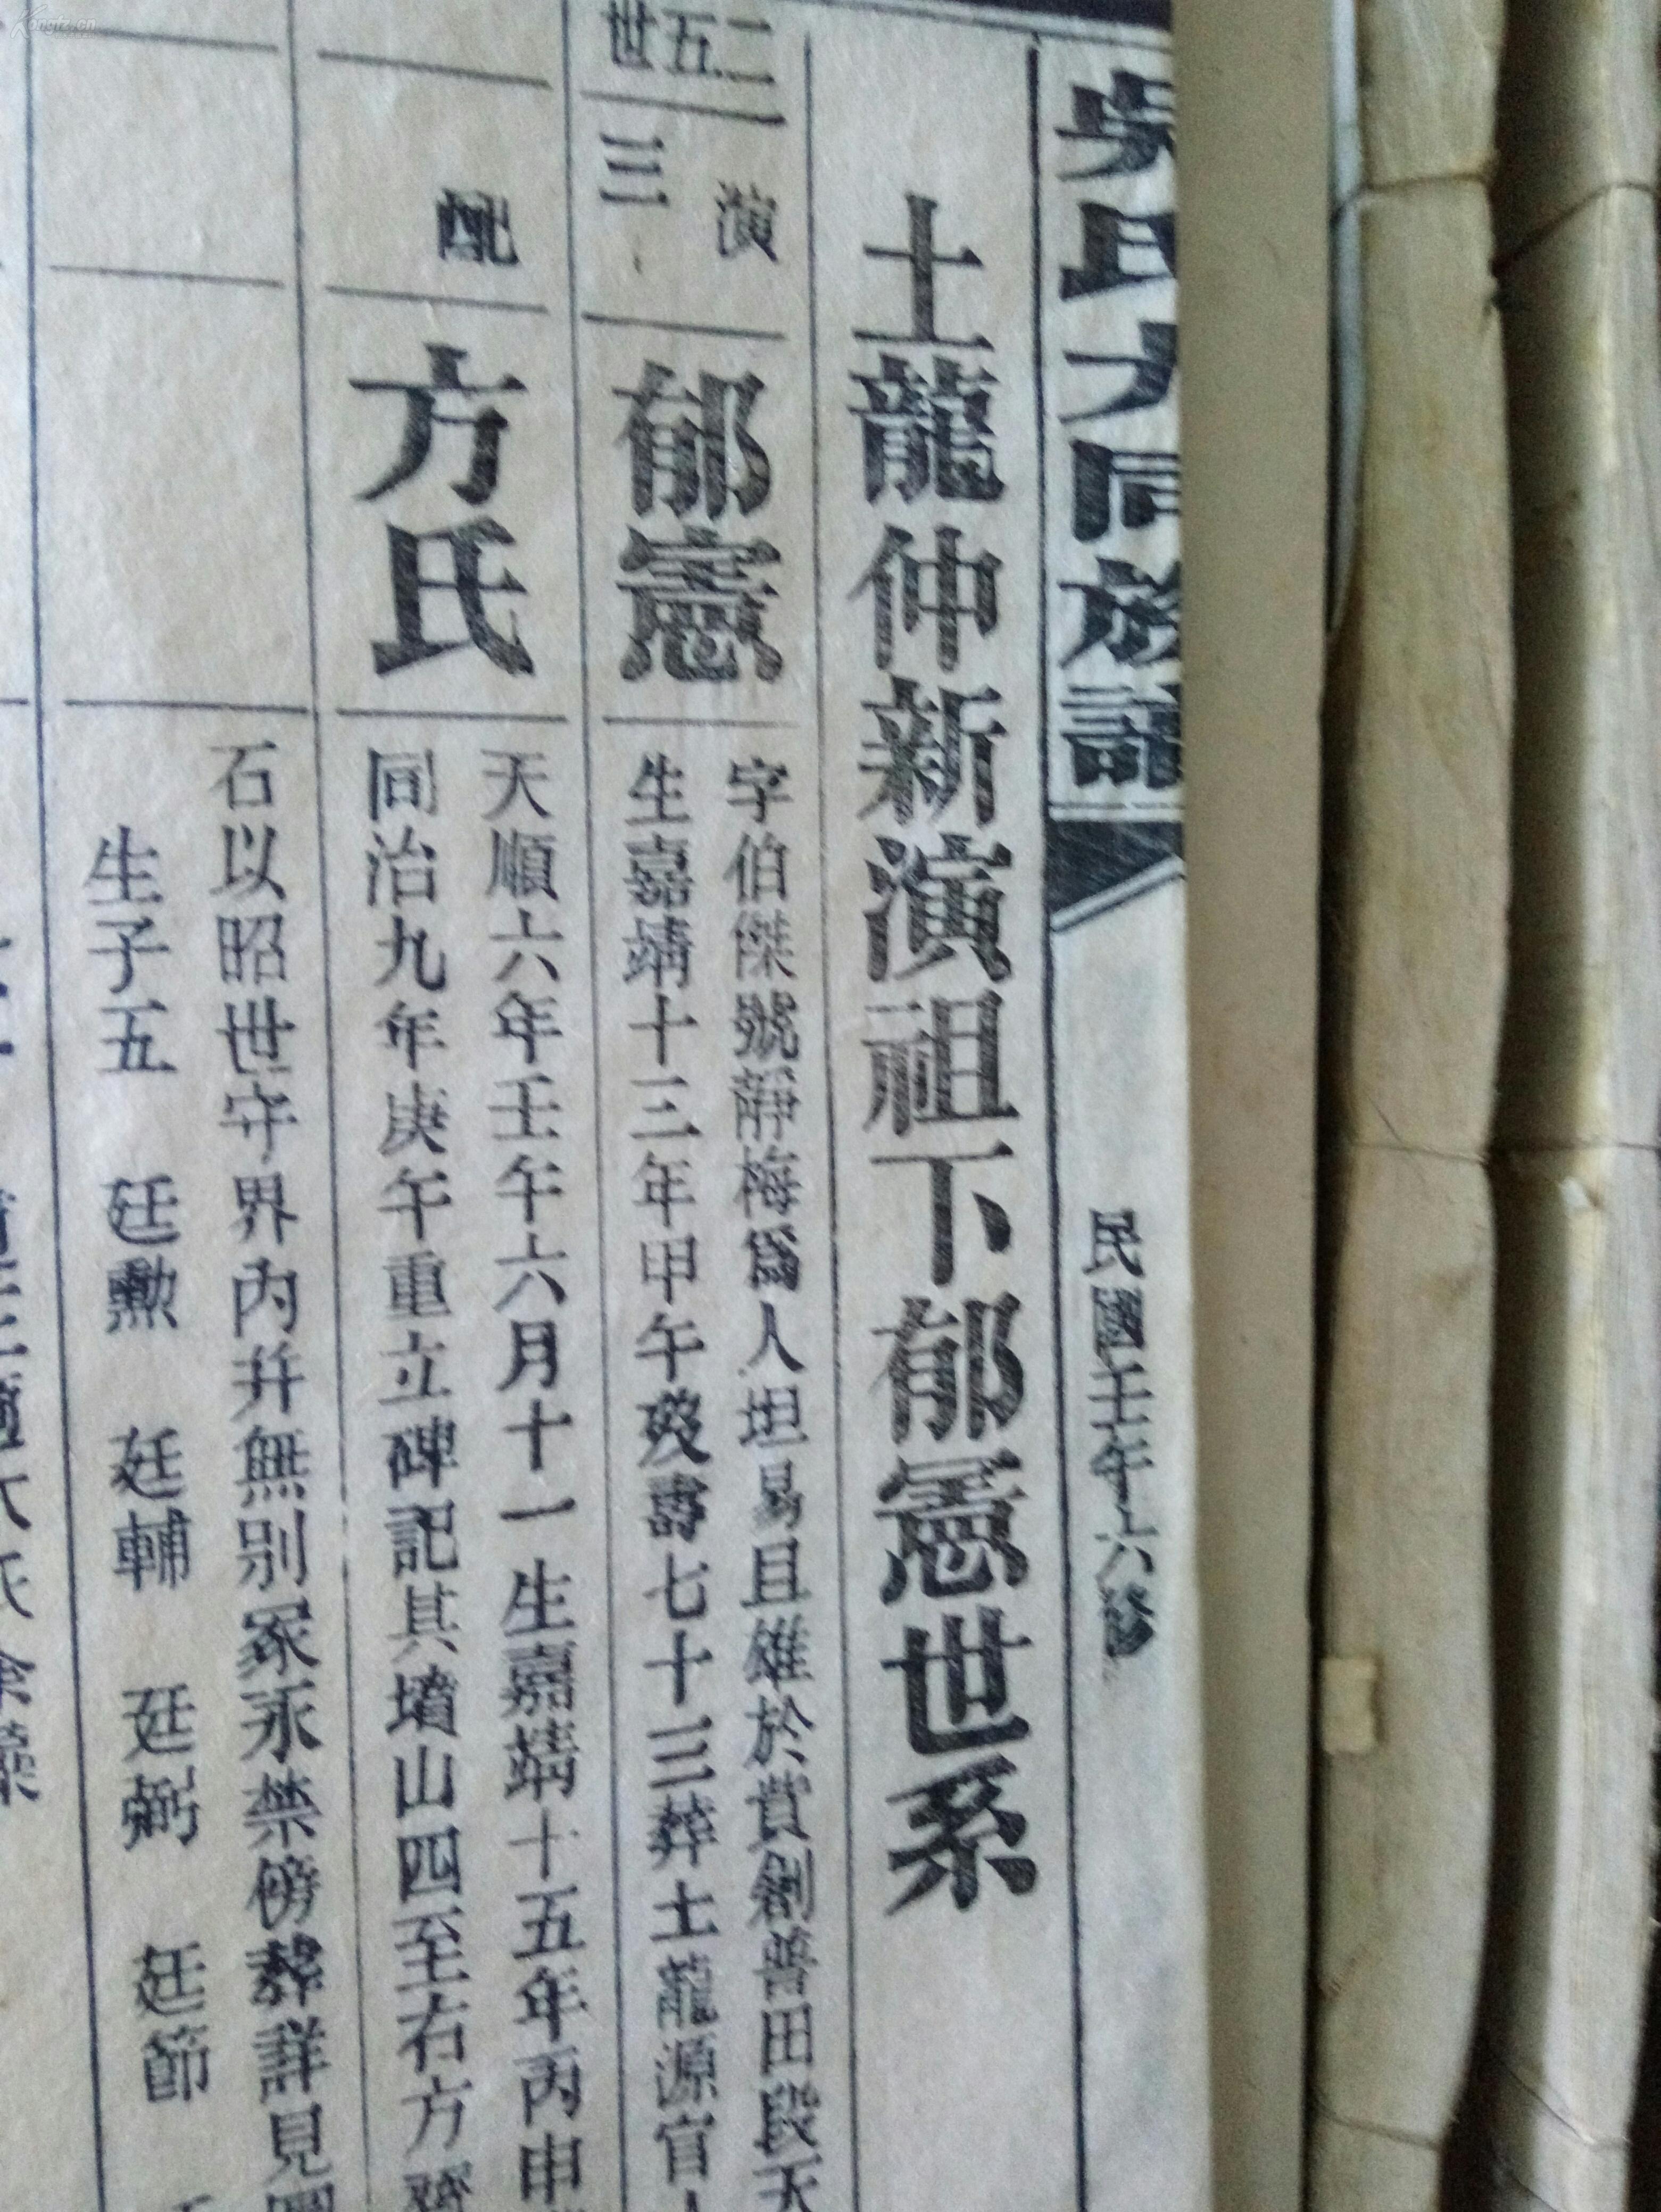 吳氏大同族譜
民國壬午六修
土龍仲新演祖下郁憲世系
二五世
演
三
郁憲
字伯傑號靜梅爲人坦易且雄於貲創普田段天
生嘉靖十三年甲午歿壽七十三葬土龍源官人
配
方氏
天順六年壬午六月十一生嘉靖十五年丙申
同治九年庚午重立碑記其墳山四至右方
石以昭世守界內幷無別冢永禁傍葬詳見圖
生子五 廷勲 廷輔 廷弼 廷節
Kongfz.cn